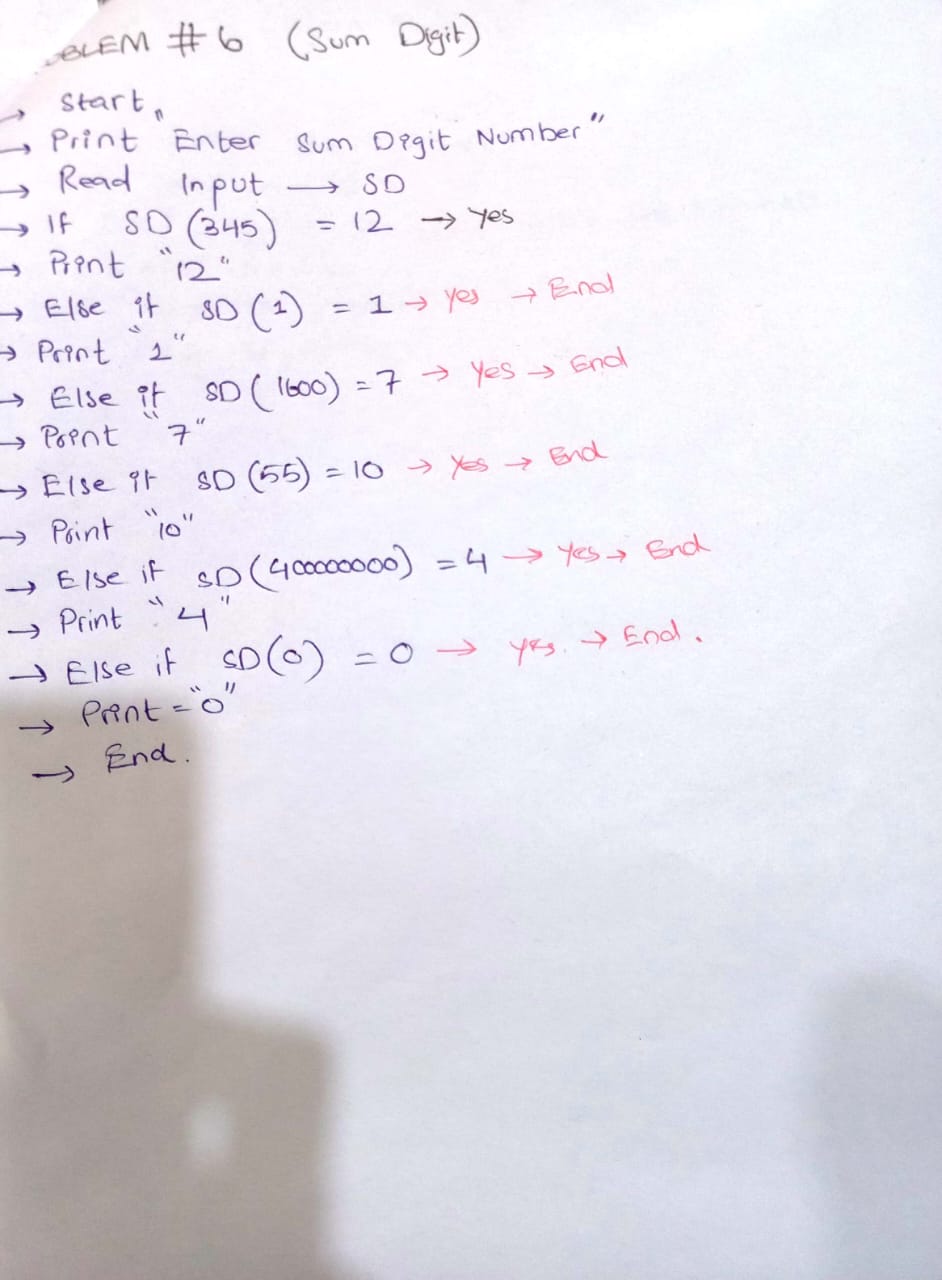 BLEM # 6 (Sum Digit)
→ Start
→ Print "Enter Sum Digit Number"
→ Read Input → SD
→ If SD (345) = 12 → Yes
→ Print "12"
→ Else if SD (1) = 1 → Yes → End
→ Print "1"
→ Else if SD (1600) = 7 → Yes → End
→ Print "7"
→ Else if SD (55) = 10 → Yes → End
→ Print "10"
→ Else if SD (400000000) = 4 → Yes → End
→ Print "4"
→ Else if SD (0) = 0 → Yes. → End.
→ Print = "0"
→ End.